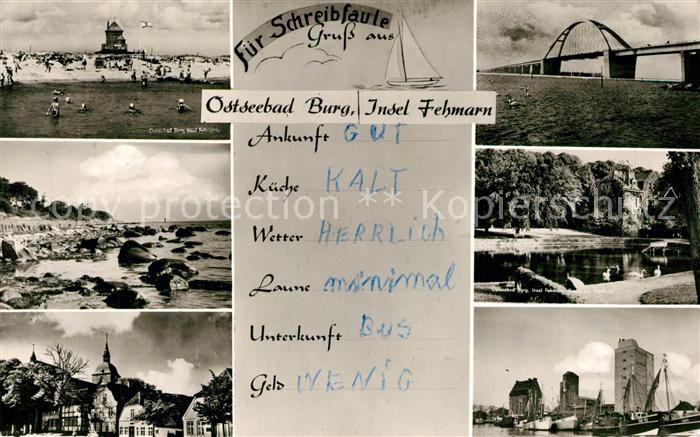 Für Schreibfaule
Gruß aus
Ostseebad Burg, Insel Fehmarn
Ankunft GUT
Küche KALT
Wetter HERRLich
Laune minimal
Unterkunft BUS
Geld WENIG
Ostseebad Burg, Insel Fehmarn
Ostseebad Burg, Insel Fehmarn
copyright protected ** Kopierschutz **